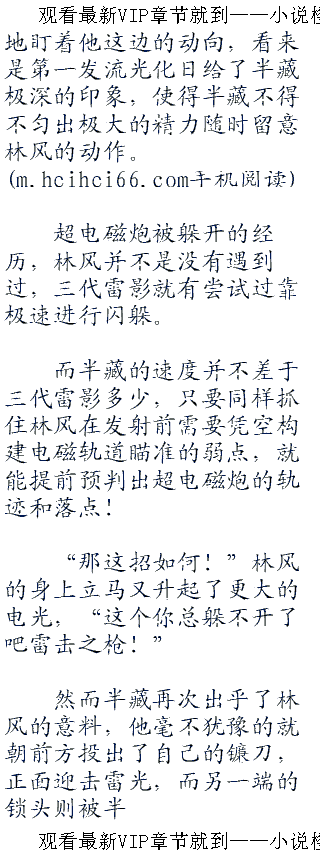 观看最新VIP章节就到——小说格
地盯着他这边的动向，看来
是第一发流光化日给了半藏
极深的印象，使得半藏不得
不匀出极大的精力随时留意
林风的动作。
(m.hcihci66.com手机阅读)
超电磁炮被躲开的经
历，林风并不是没有遇到
过，三代雷影就有尝试过靠
极速进行闪躲。
而半藏的速度并不差于
三代雷影多少，只要同样抓
住林风在发射前需要凭空构
建电磁轨道瞄准的弱点，就
能提前预判出超电磁炮的轨
迹和落点！
“那这招如何！”林风
的身上立马又升起了更大的
电光，“这个你总躲不开了
吧雷击之枪！”
然而半藏再次出乎了林
风的意料，他毫不犹豫的就
朝前方投出了自己的镰刀，
正面迎击雷光，而另一端的
锁头则被半
观看最新VIP章节就到——小说